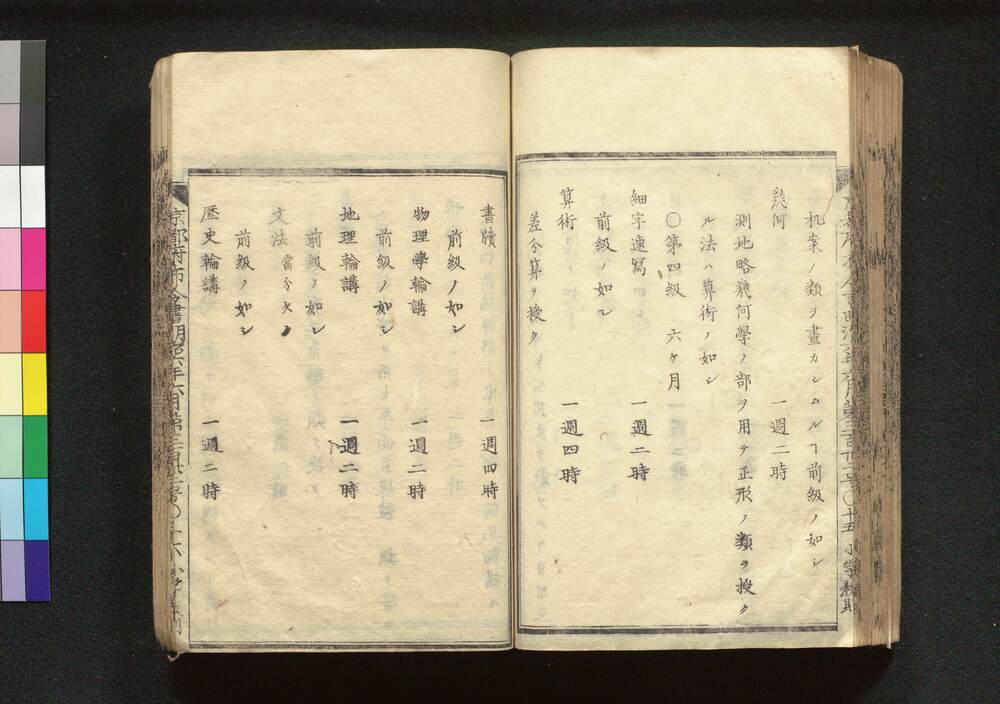 机案ノ類ヲ畫カシムルヿ前級ノ如シ
幾何 一週二時
測地略幾何學ノ部ヲ用テ正形ノ類ヲ授ク
ル法ハ算術ノ如シ
〇第四級 六ケ月
細字速寫 一週二時
前級ノ如シ
算術 一週四時
差分算ヲ授ク
書牘 一週四時
前級ノ如シ
物理學輪講 一週二時
前級ノ如シ
地理輪講 一週二時
前級ノ如シ
文法 當分欠ク
前級ノ如シ
歴史輪講 一週二時
京都府布令書明治六年六月第三百廿二号〇十六